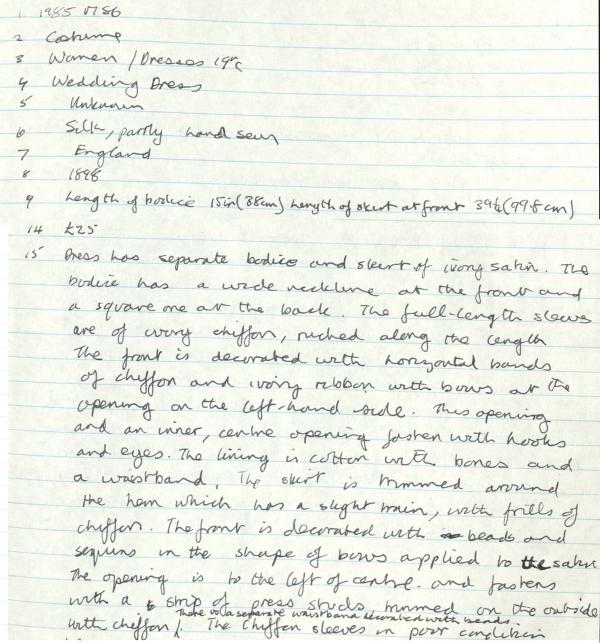 1 1985 M86
2 Costume
3 Women / Dresses 19thC
4 Wedding Dress
5 Unknown
6 Silk, partly hand sewn
7 England
8 1898
9 Length of bodice 15in(38cm) Length of skirt at front 39¼(99.8cm)
14 £25
15 Dress has separate bodice and skirt of ivory satin. The
bodice has a wide neckline at the front and
a square one at the back. The full-length sleeves
are of ivory chiffon, ruched along the length
The front is decorated with horizontal bands
of chiffon and ivory ribbon with bows at the
opening on the left-hand side. This opening
and an inner, centre opening fasten with hooks
and eyes. The lining is cotton with bones and
a waistband. The skirt is trimmed around
the hem which has a slight train, with frills of
chiffon. The front is decorated with beads and
sequins in the shape of bows applied to the satin
The opening is to the left of centre. and fastens
with a strip of press studs trimmed on the outside
There is a separate waistband decorated with beads.
with chiffon /. The chiffon sleeves in poor condition